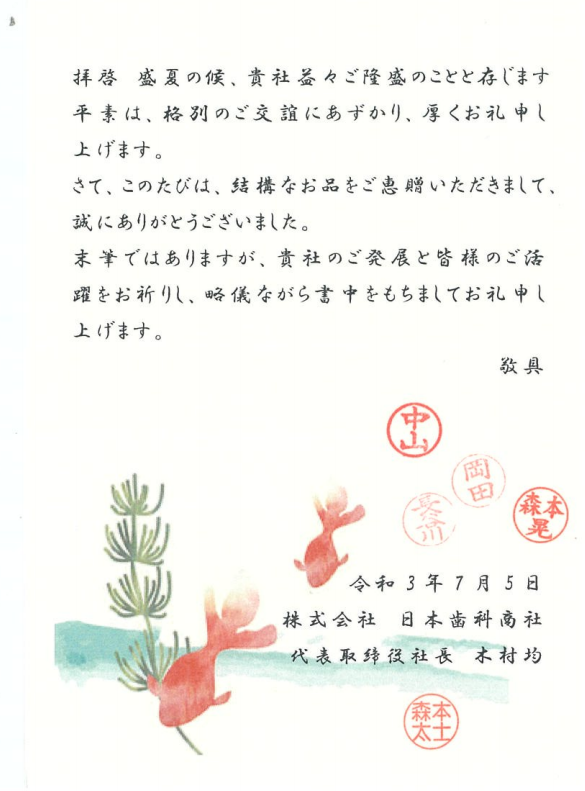 拝啓 盛夏の候、貴社益々ご隆盛のことと存じます
平素は、格別のご交誼にあずかり、厚くお礼申し
上げます。
さて、このたびは、結構なお品をご恵贈いただきまして、
誠にありがとうございました。
末筆ではありますが、貴社のご発展と皆様のご活
躍をお祈りし、略儀ながら書中をもちましてお礼申し
上げます。
敬具
中山
岡田
長谷川
森本晃
令和3年7月5日
株式会社 日本歯科商社
代表取締役社長 木村均
森本太士